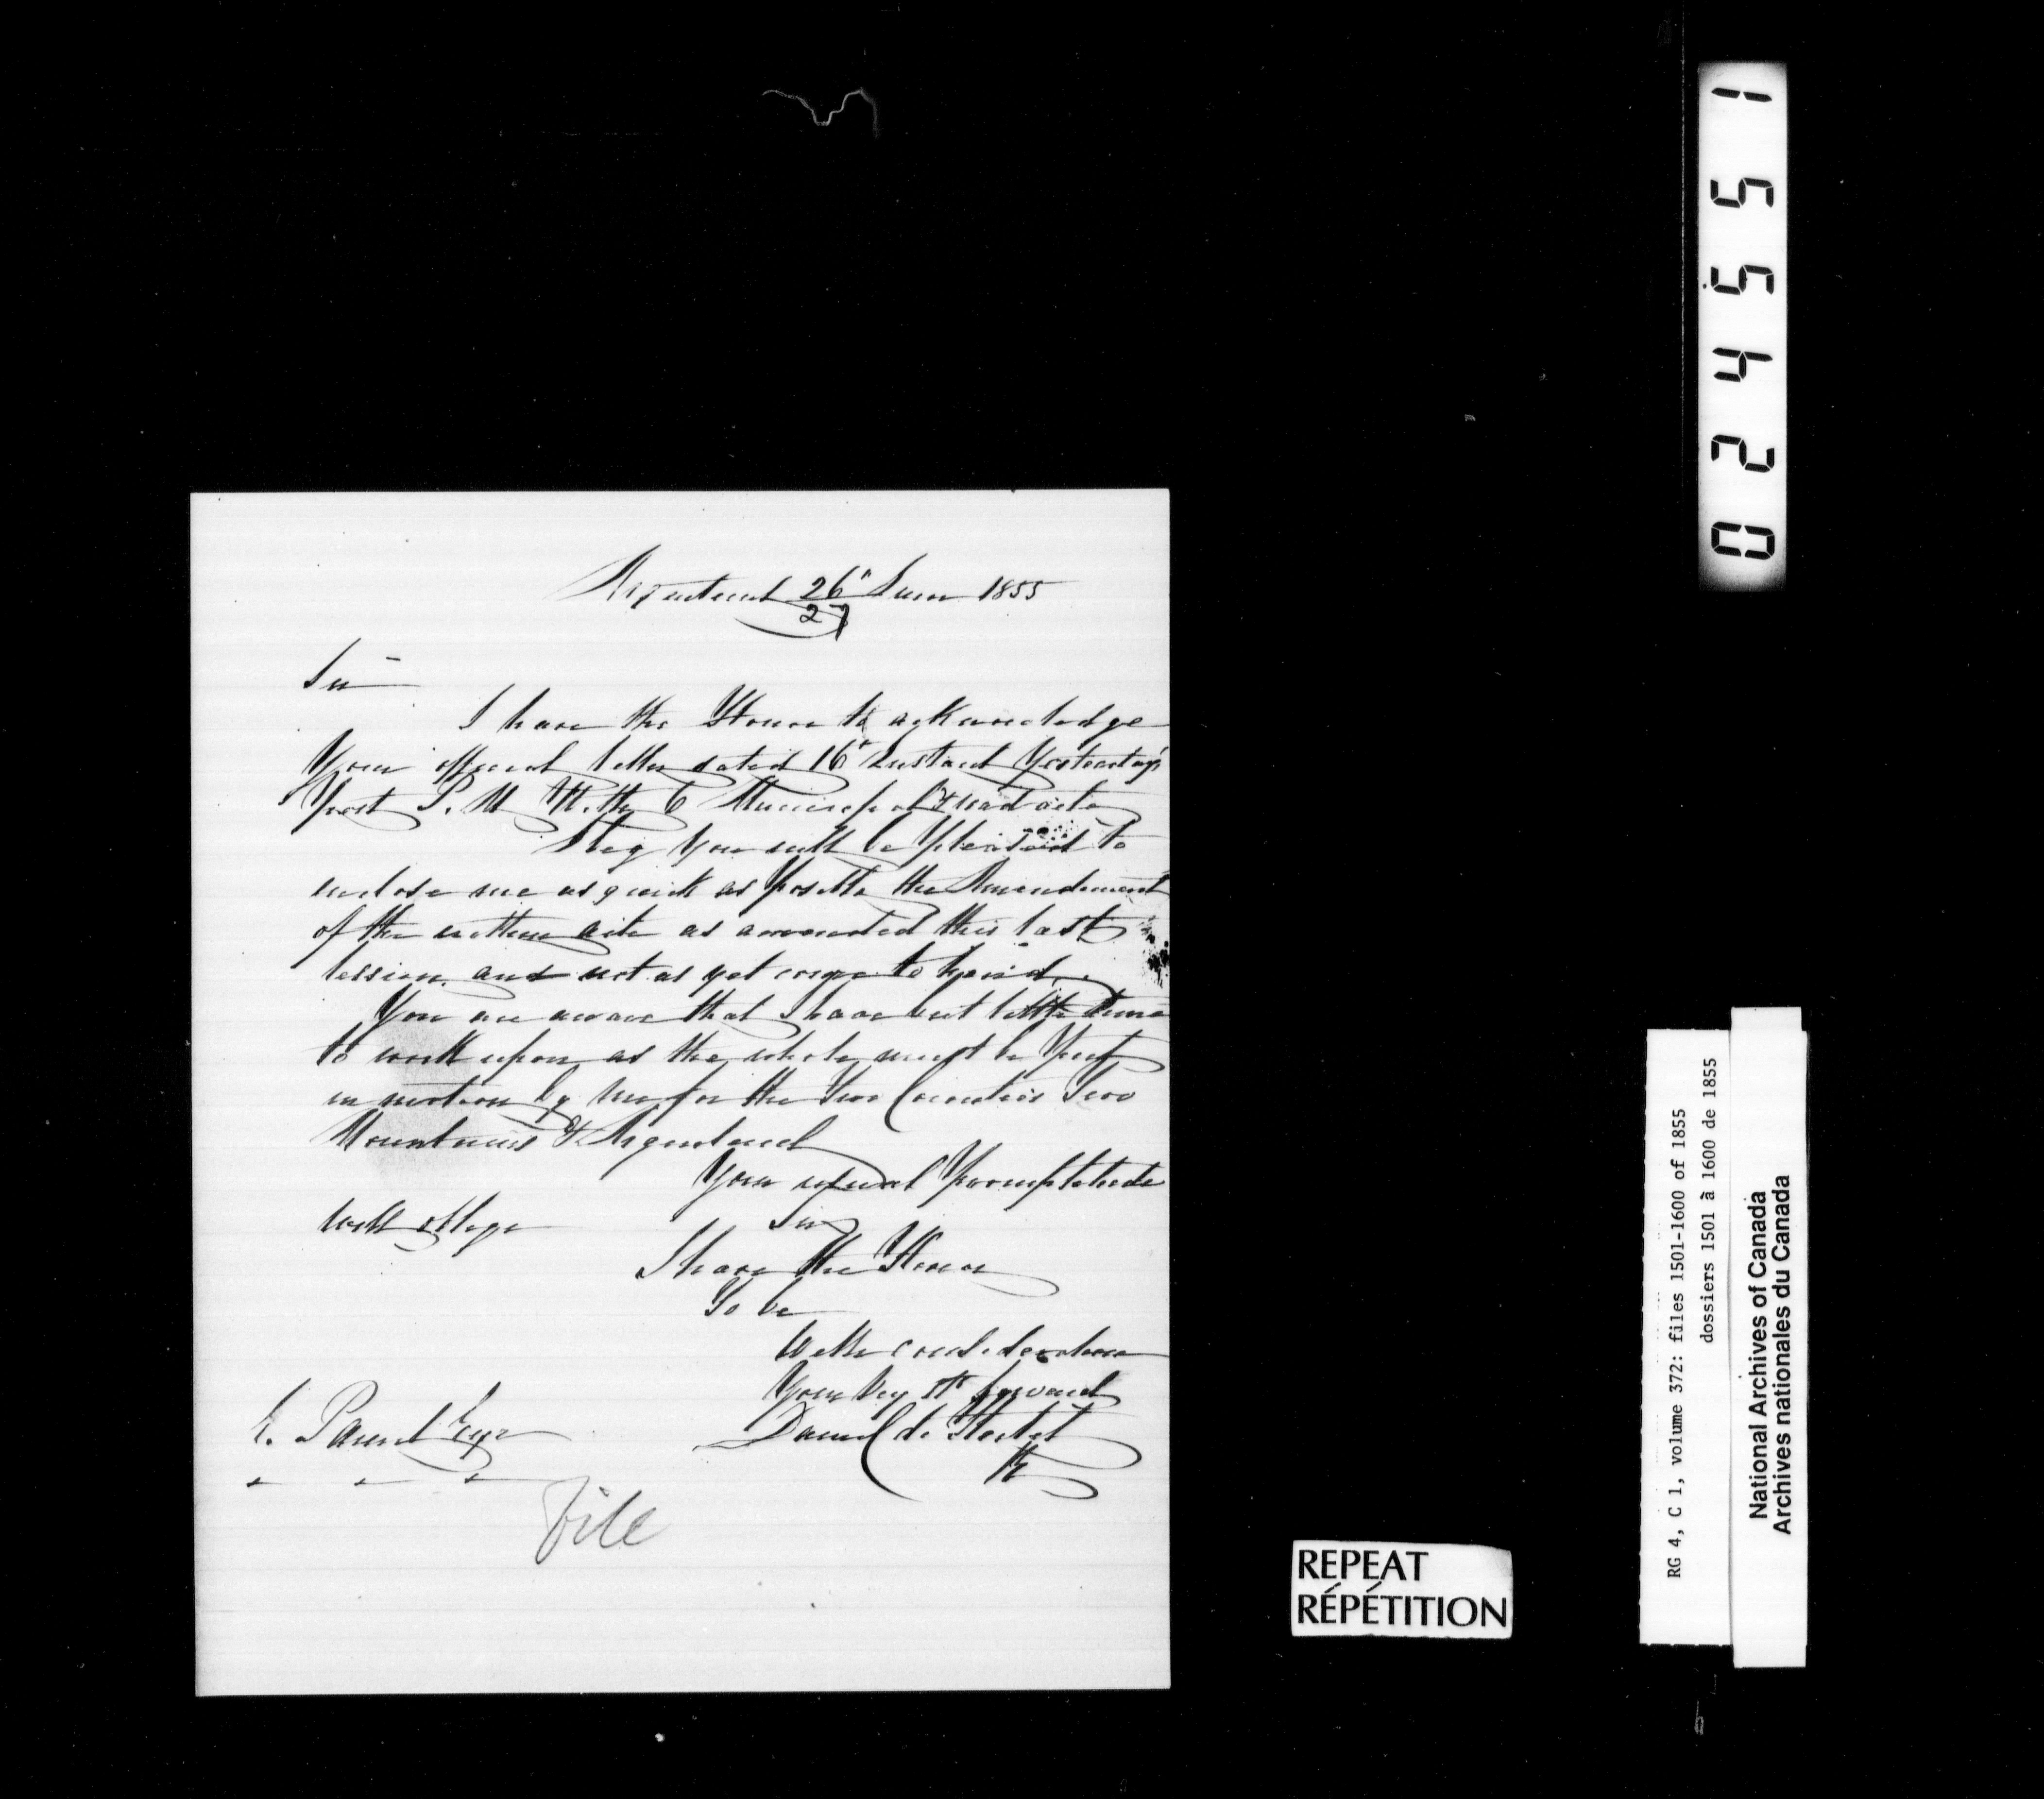 Argenteuil 26" June 1855
27
Sir
I have the Honor to acknowledge
Your official letter dated 16" Instant Yesterdays
Post P. M With 6 Municipal & road acts
I beg You will be Pleased to
enclose me as quick as Possible the Amendment
of the written acts as amended this last
session and not as yet come to hand.
You are aware that I have but little time
to work upon as the whole must be Put
in motion by me for the Two Counties Two
Mountains & Argenteuil
Your usual Promptitude
will oblige
Sir
I have the Honor
To be
With consideration
Your Very St Servant
Daniel de Hertel
E. Parent Esqr
File
0 2 4 5 5 1
RG 4, C 1, volume 372: files 1501-1600 of 1855
dossiers 1501 à 1600 de 1855
National Archives of Canada
Archives nationales du Canada
REPEAT
RÉPÉTITION